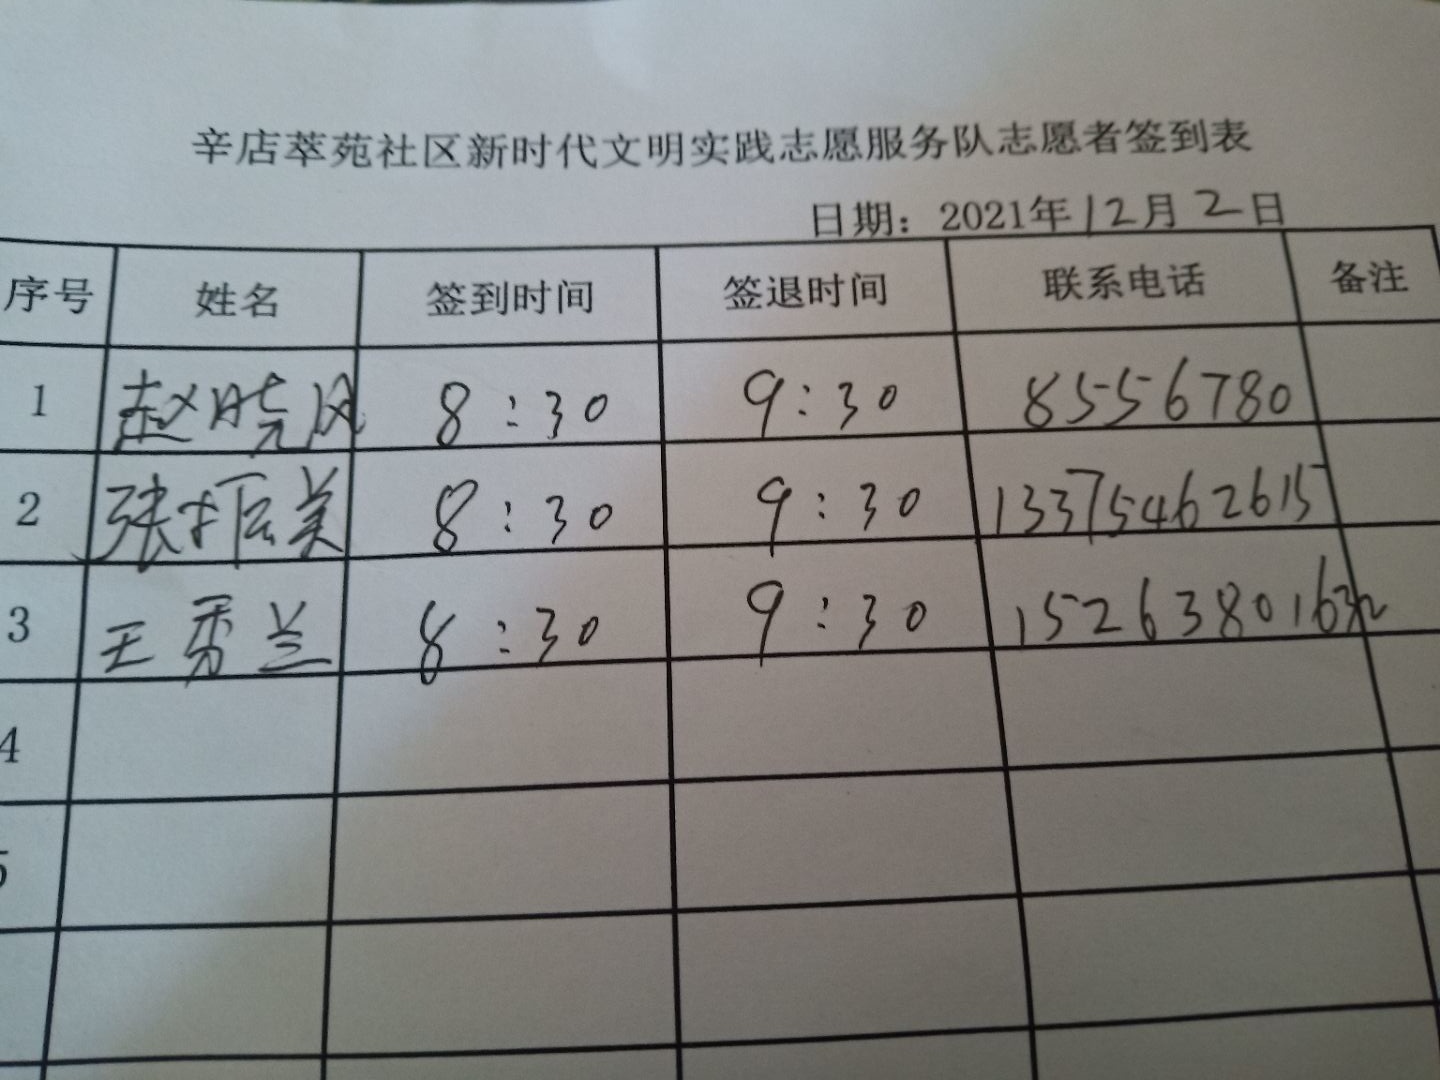 辛店萃苑社区新时代文明实践志愿服务队志愿者签到表
日期：2021年12月2日
序号 姓名 签到时间 签退时间 联系电话 备注
1 赵晓风 8:30 9:30 8556780
2 张振美 8:30 9:30 13375462615
3 王秀兰 8:30 9:30
4
5